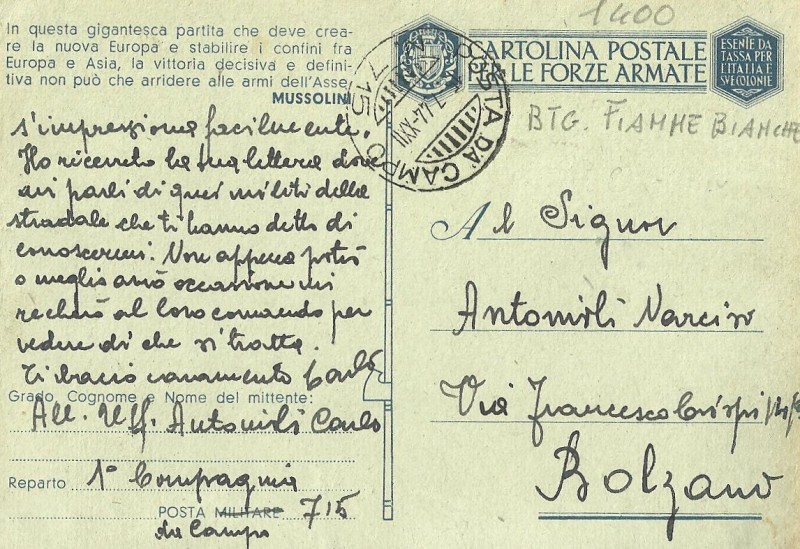 In questa gigantesca partita che deve crea-
re la nuova Europa e stabilire i confini fra
Europa e Asia, la vittoria decisiva e defini-
tiva non può che arridere alle armi dell'Asse
MUSSOLINI
s'impressiona facilmente.
Ho ricevuto la tua lettera dove
mi parli di quei militi della
stradale che ti hanno detto di
conoscermi. Non appena potrò
o meglio avrò occasione mi
recherò al loro comando per
vedere di che si tratta.
Ti bacio caramente Carlo
Grado, Cognome e Nome del mittente:
All. Uff. Antonioli Carlo
Reparto 1ª Compagnia
POSTA MILITARE 715
da Campo
1400
CARTOLINA POSTALE
PER LE FORZE ARMATE
ESENTE DA
TASSA PER
L'ITALIA E
SVE COLONIE
POSTA DA CAMPO
715
44-XXII
BTG. FIAMME BIANCHE
Al Signor
Antonioli Narciso
Via Francesco Crispi
Bolzano